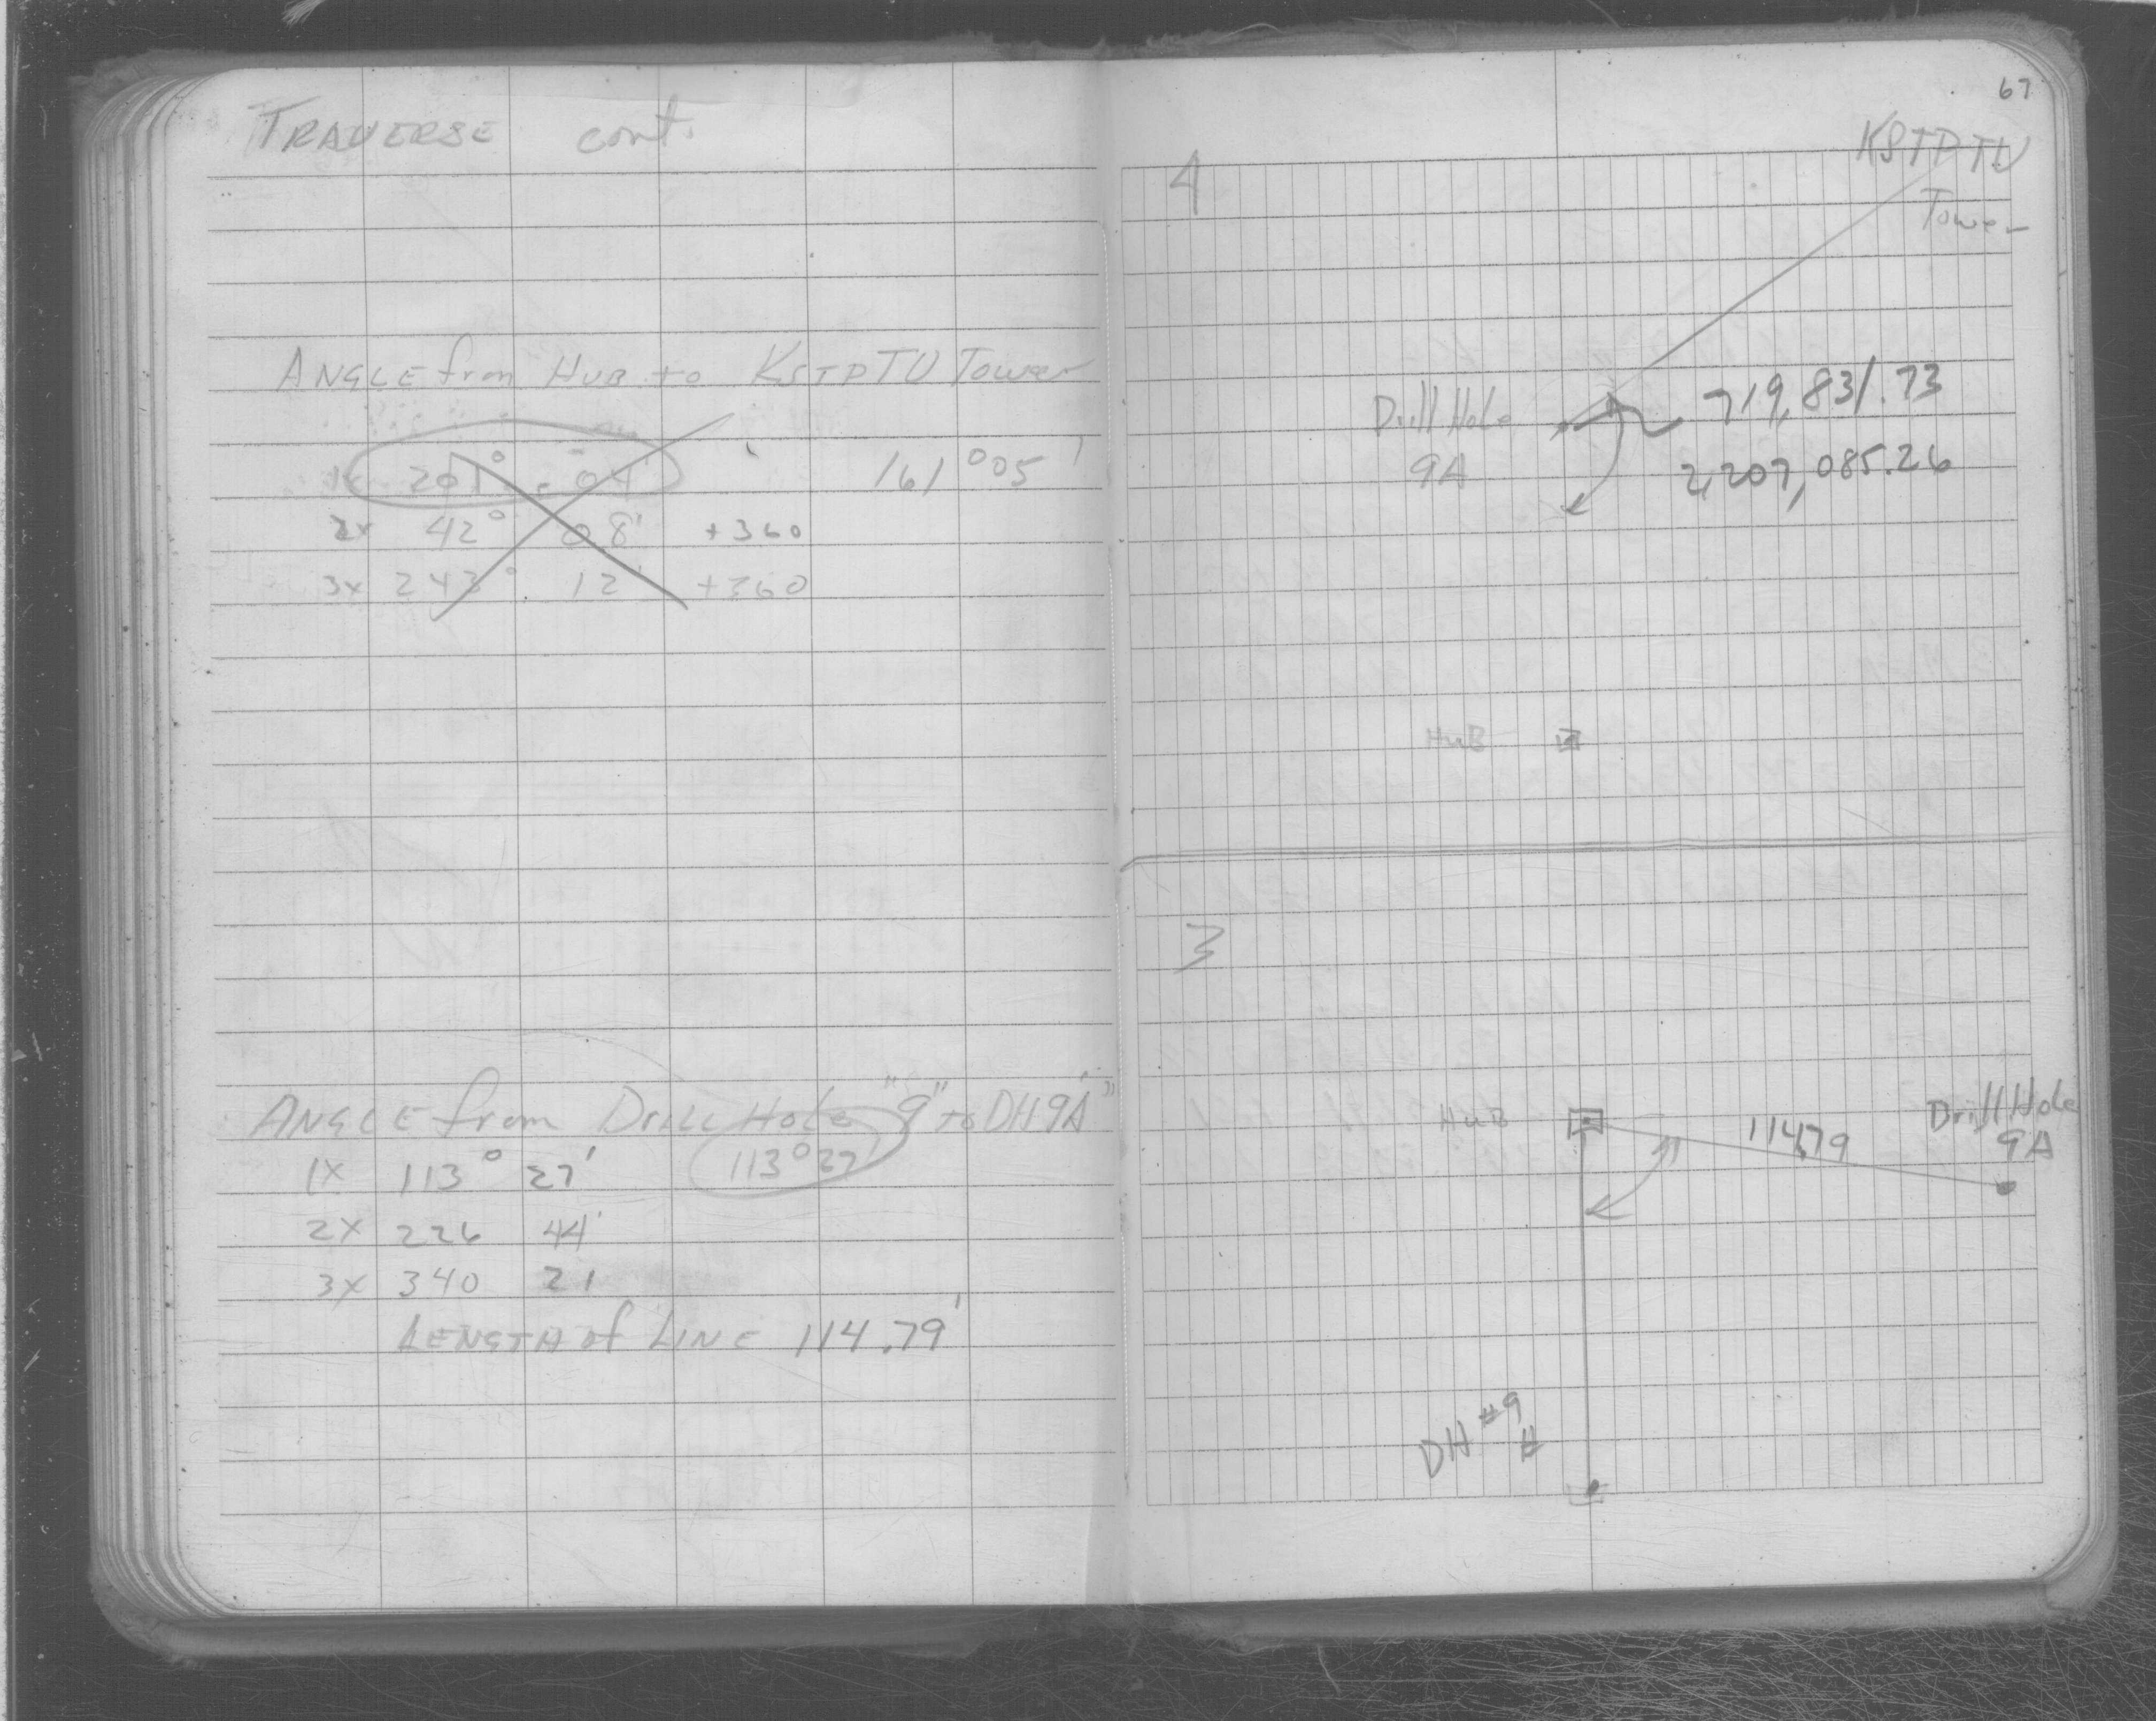 TRAVERSE cont.
ANGLE from HUB to KSTP TV Tower
1x 201° 04' 161°05'
2x 42° 08' +360
3x 243° 12' +360
ANGLE from DRILL HOLE "9" to DH "9A"
1x 113° 27' 113°27'
2x 226 44'
3x 340 21
LENGTH of LINE 114.79'
67
4
KSTP TV
Tower
Drill Hole 719,831.73
9A 2,207,085.26
HUB
3
HUB 114.79 Drill Hole
9A
DH #9